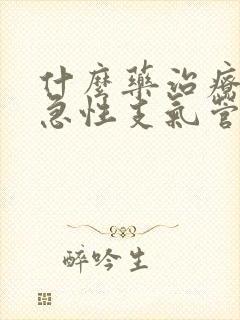 什麼藥治療
急性支氣管
醉吟生